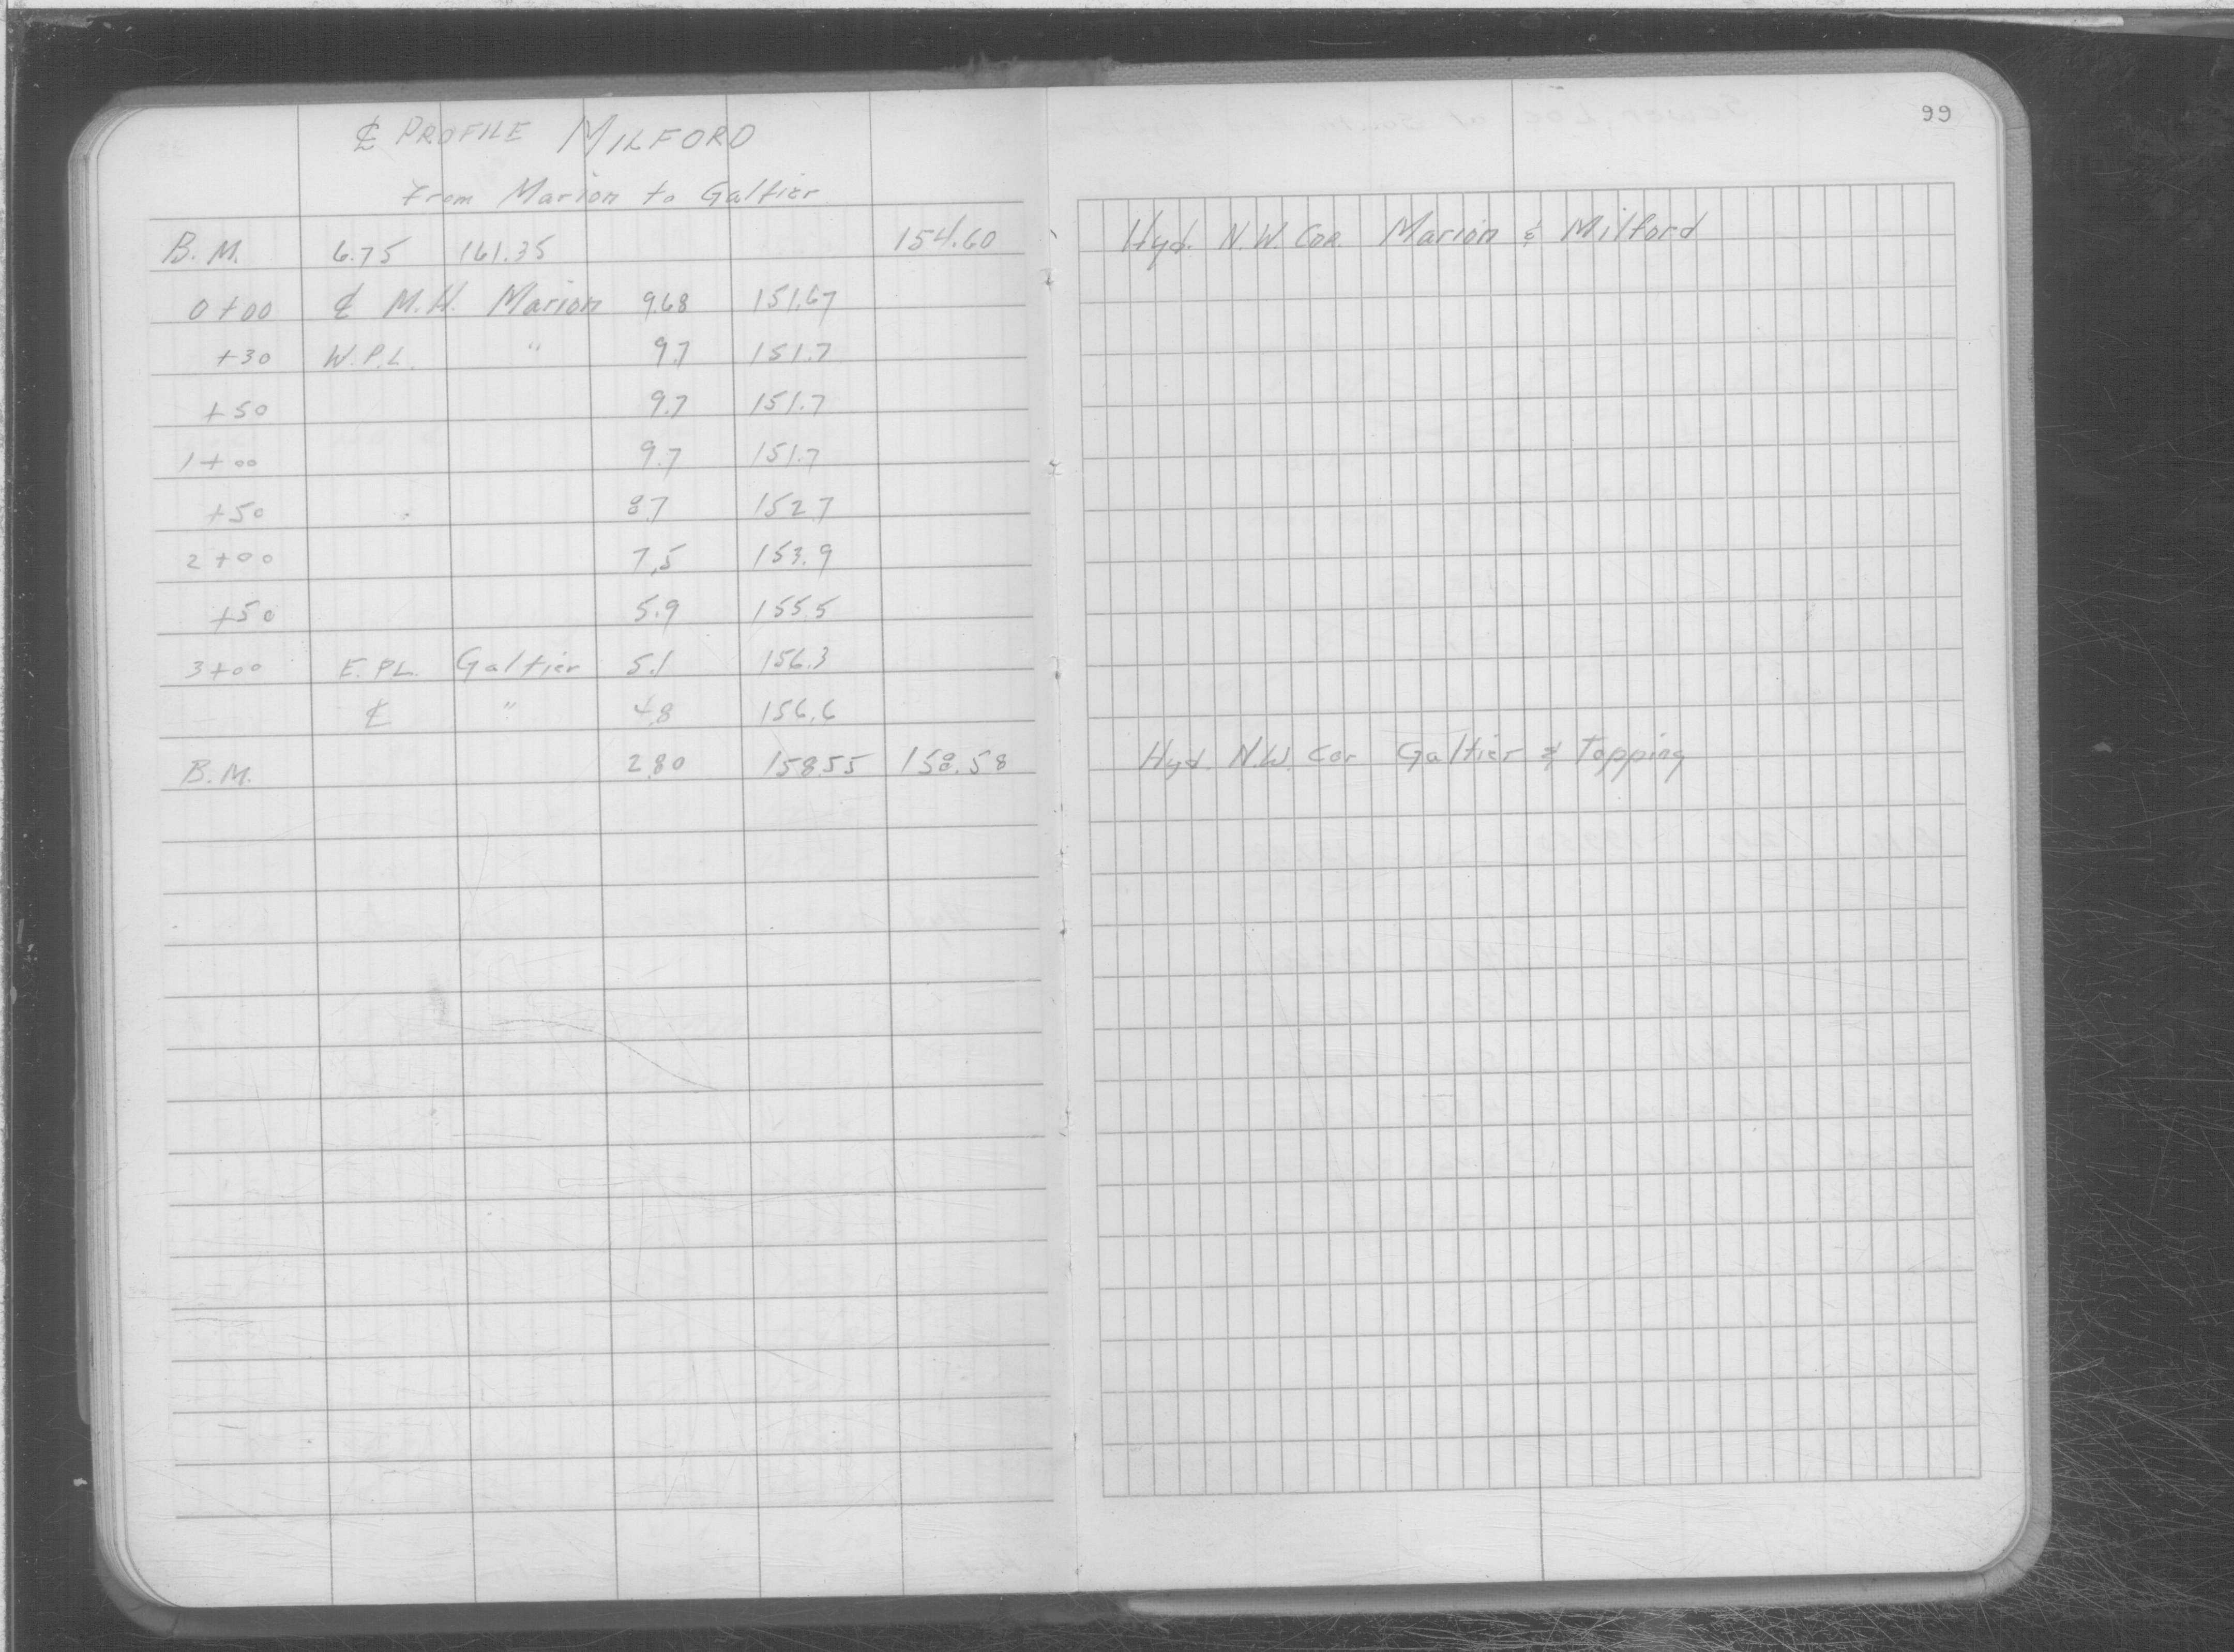 ℄ PROFILE MILFORD
From Marion to Galtier
B.M. 6.75 161.35 154.60
0+00 ℄ M.H. Marion 9.68 151.67
+30 W.P.L. " 9.7 151.7
+50 9.7 151.7
1+00 9.7 151.7
+50 8.7 152.7
2+00 7.5 153.9
+50 5.9 155.5
3+00 E.PL. Galtier 5.1 156.3
℄ " 4.8 156.6
B.M. 2.80 158.55 158.58
99
Hyd. N.W. Cor. Marion & Milford
Hyd. N.W. Cor Galtier & Topping